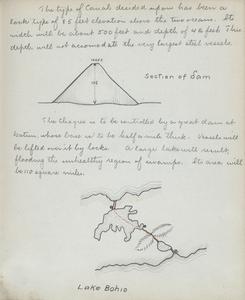 The type of Canal decided upon has been a
lock type of 85 feet elevation above the two oceans. Its
width will be about 500 feet and depth of 40 feet. This
depth will not accomodate the very largest steel vessels.
Section of dam
The Chagres is to be controlled by a great dam at
Gatun, whose base is to be half a mile thick. Vessels will
be lifted over it by locks. A large lake will result,
flooding the unhealthy region of swamps. Its area will
be 110 square miles.
Lake Bohio